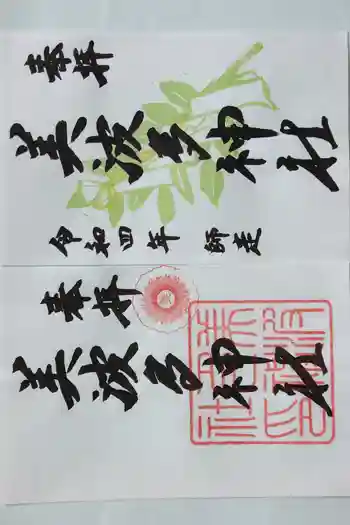 奉拝
美波多神社
令和四年 師走
奉拝
美波多神社